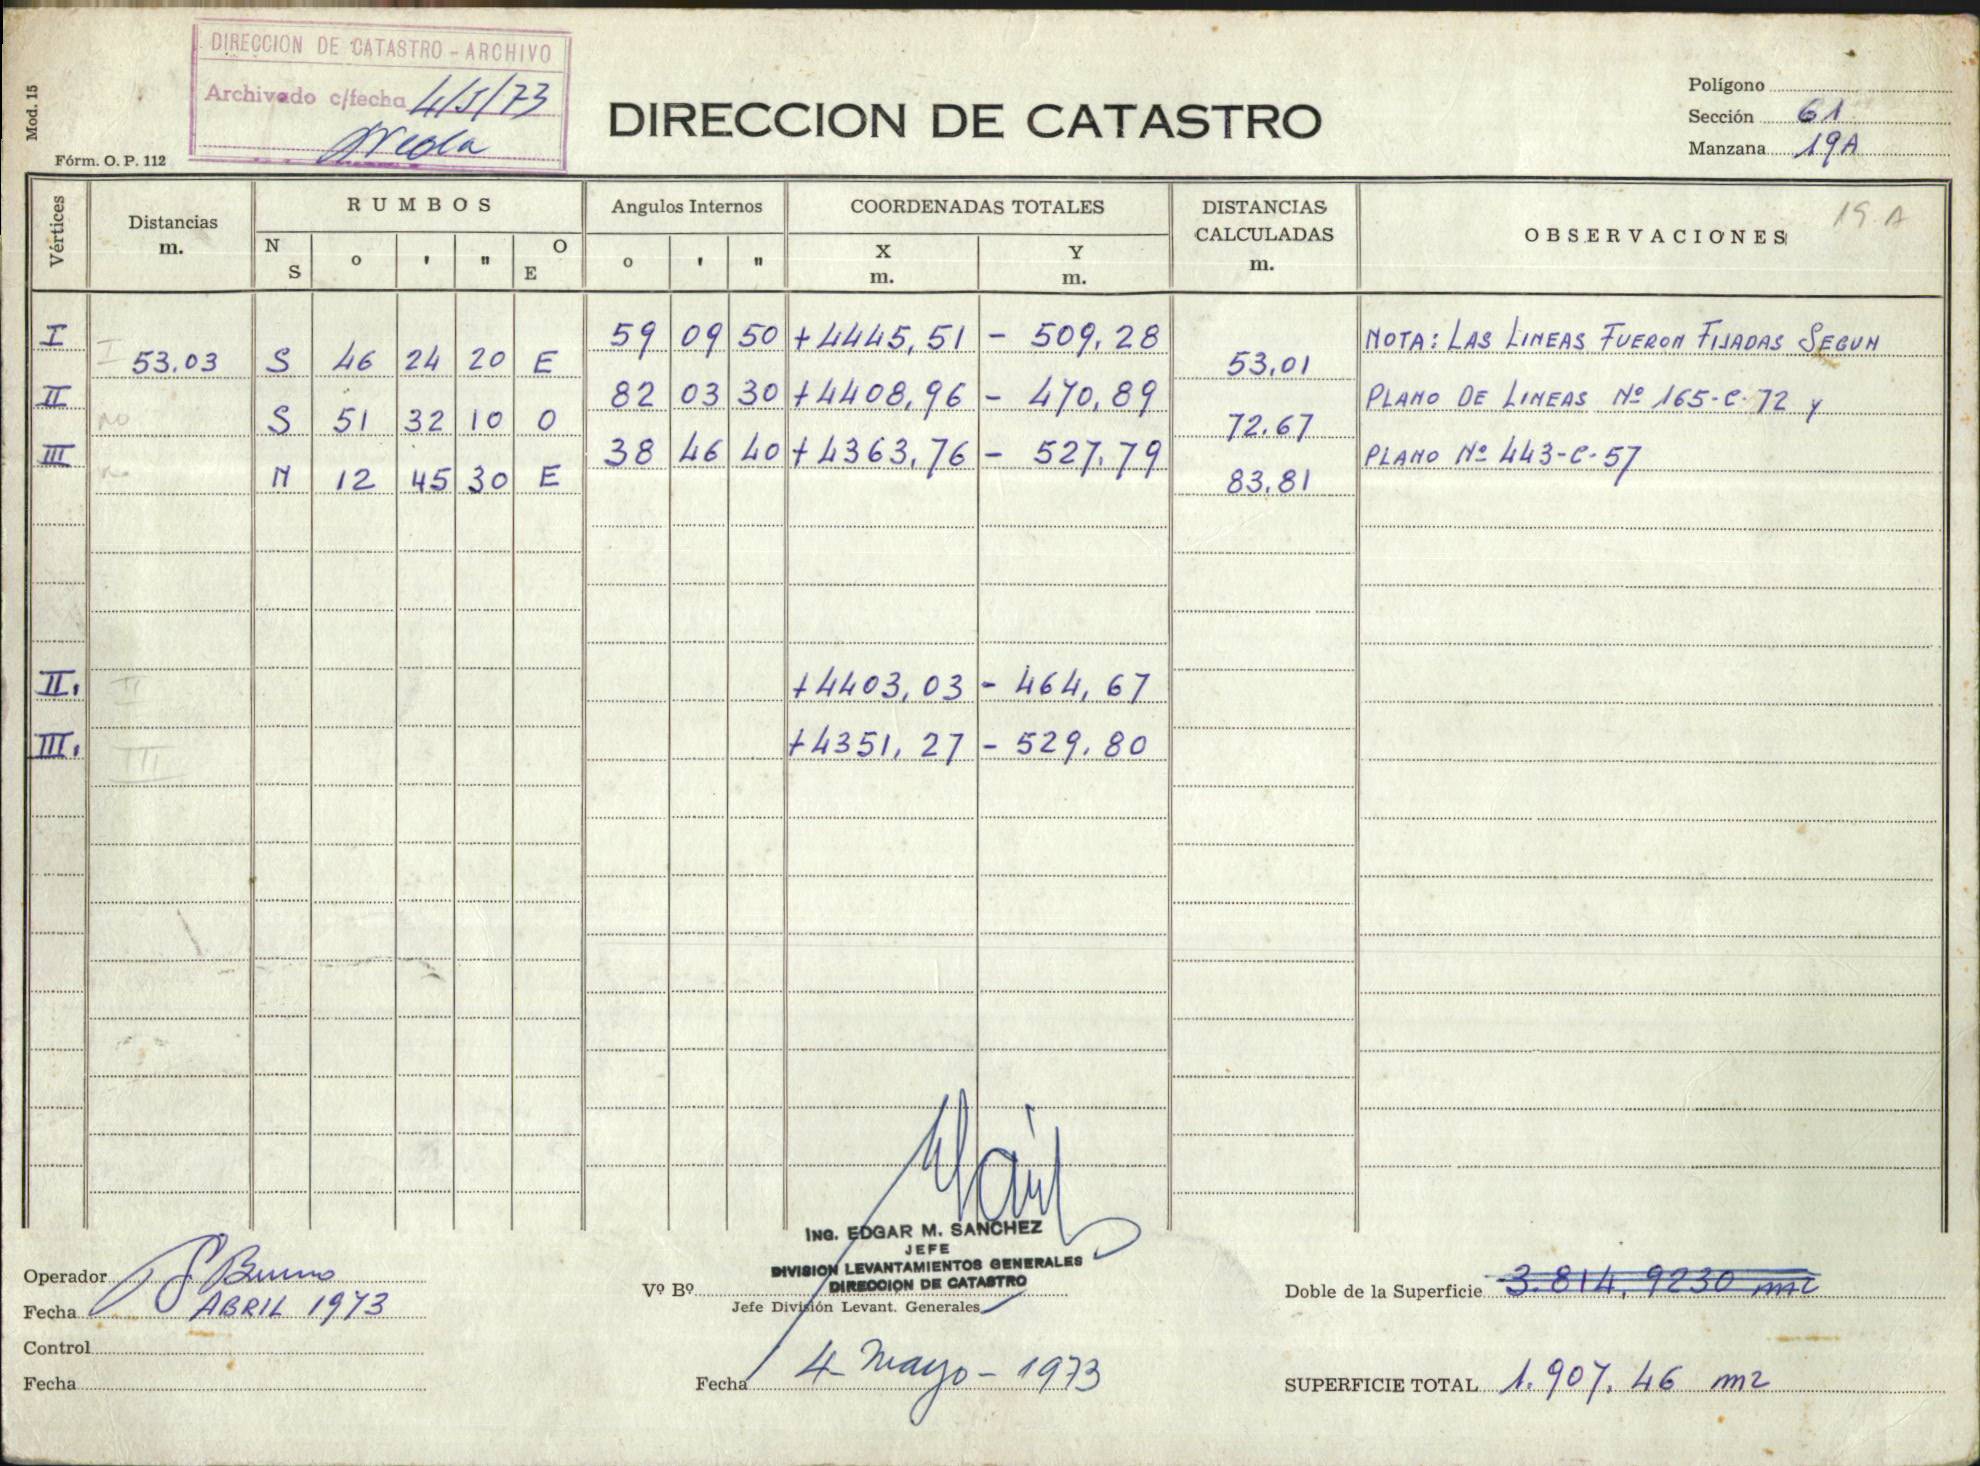 DIRECCION DE CATASTRO - ARCHIVO
Archivado c/fecha 4/5/73
Mod. 15
Fórm. O. P. 112
DIRECCION DE CATASTRO
Polígono
Sección 61
Manzana 19A
19 A
Vértices
Distancias
m.
RUMBOS
N
S
o
'
"
O
E
Angulos Internos
o
'
"
COORDENADAS TOTALES
X
m.
Y
m.
DISTANCIAS
CALCULADAS
m.
OBSERVACIONES
I 59 09 50 +4445,51 - 509,28 NOTA: LAS LINEAS FUERON FIJADAS SEGUN
I 53.03 S 46 24 20 E 53,01
II 82 03 30 +4408,96 - 470,89 PLANO DE LINEAS Nº 165-C-72 y
no S 51 32 10 O 72.67
III 38 46 40 +4363,76 - 527,79 PLANO Nº 443-C-57
no N 12 45 30 E 83,81
II. II +4403,03 - 464,67
III. III +4351,27 - 529,80
ING. EDGAR M. SANCHEZ
JEFE
DIVISION LEVANTAMIENTOS GENERALES
DIRECCION DE CATASTRO
Operador Bruno
Fecha ABRIL 1973
Control
Fecha
Vº Bº
Jefe División Levant. Generales
Fecha 4 Mayo - 1973
Doble de la Superficie 3.814,9230 m2
SUPERFICIE TOTAL 1.907,46 m2